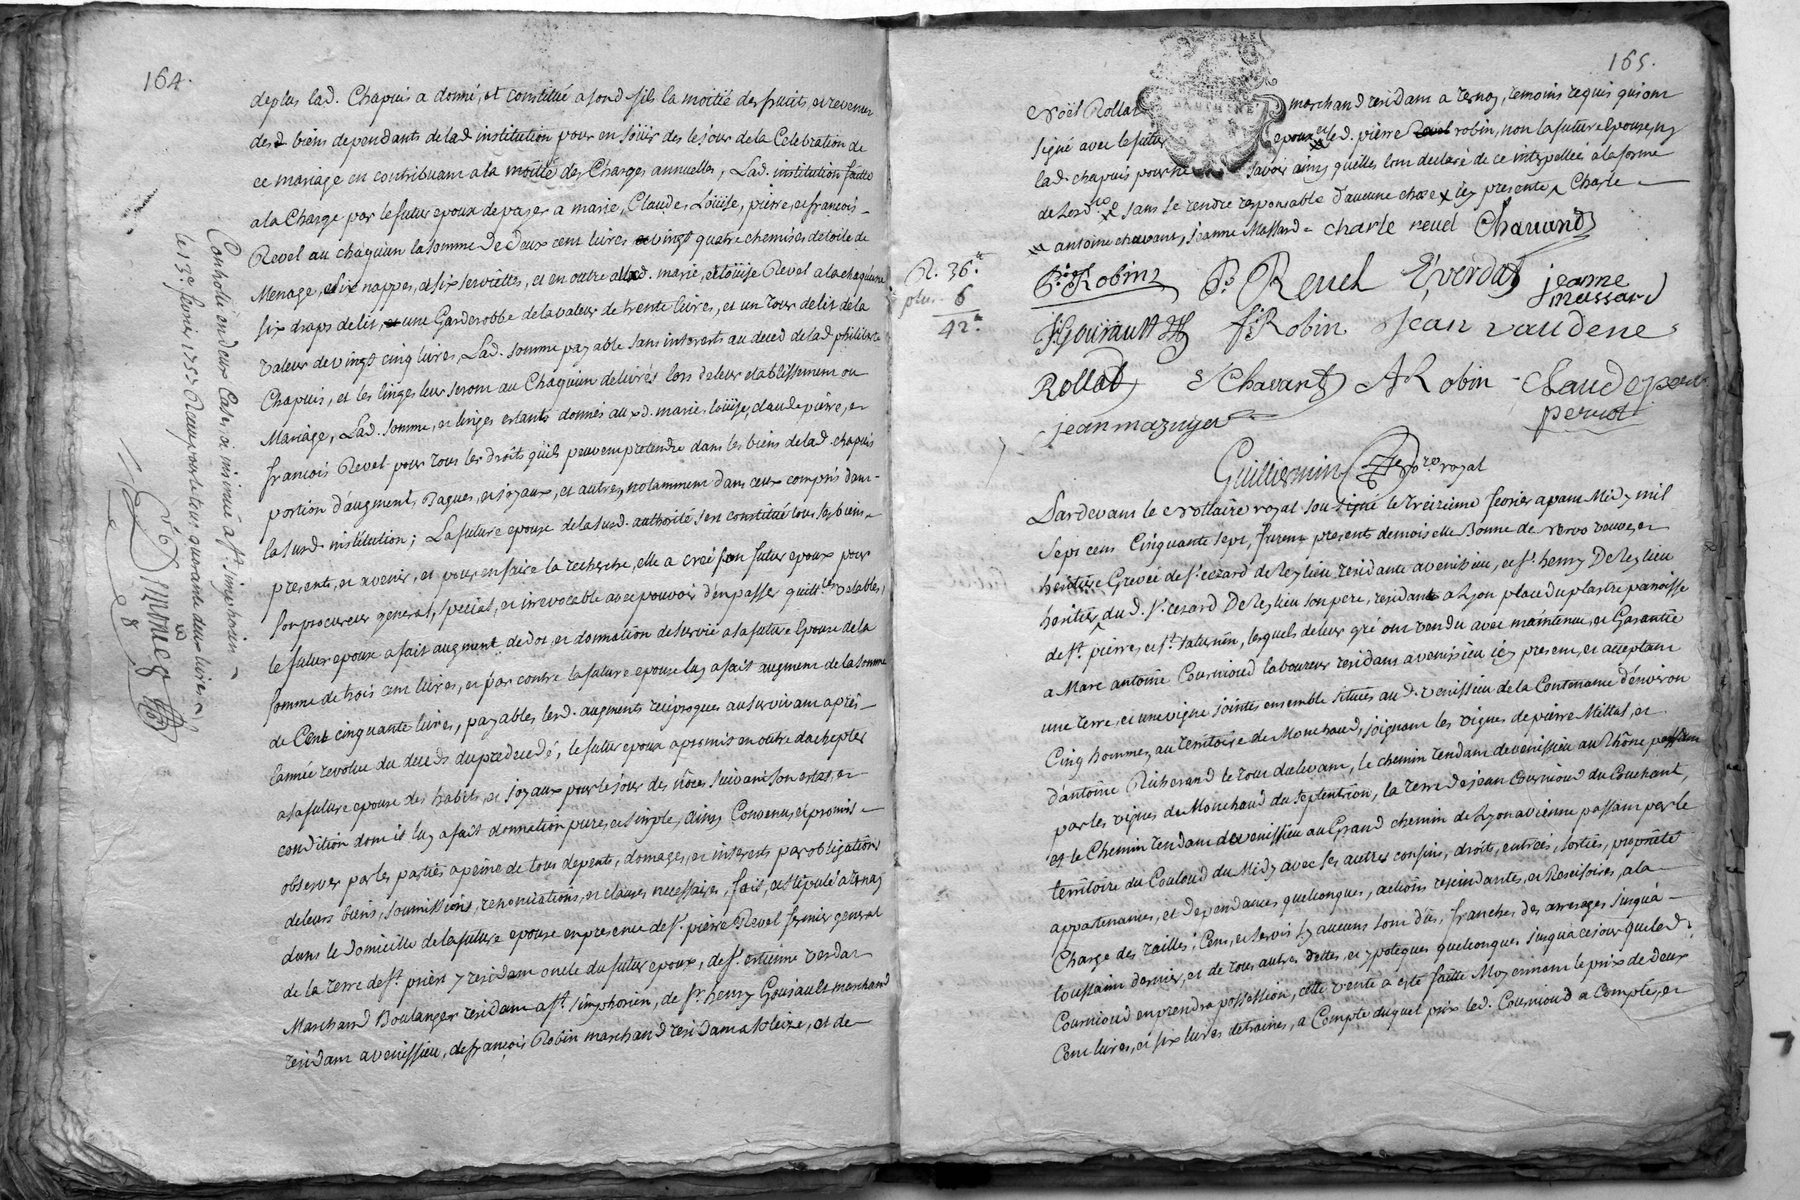 164.
deplus lad. Chapuis a donné, et constitué asond fils la moitié des fruits, et revenus
desd biens dependants delad institution pour en joüir des le jour de la Celebration de
ce mariage en contribuant a la moitié des Charges annuelles, Lad. institution faitte
a la Charge par le futur epoux de payer a marie, Claude, Loüise, pierre, et francois
Revel au chaquun la somme de deux cent livres vingt quatre chemises de toile de
Menage, six nappes, et six serviettes, et en outre auxd. marie, et loüise Revel a la chaquune
six draps delit, et une Garderobbe de la valeur de trente livres, et un tour de lit de la
valeur de vingt cinq livres, Lad. somme payable sans interests au deced de lad philiberte
Chapuis, et les linges leur seront au Chaquun delivrés lors de leur etablissement ou
Mariage, Lad. somme, et linges estants donnés auxd. marie, loüise, claude, pierre, et
francois Revel pour tous les droits qu'ils peuvent pretendre dans les biens de lad. chapuis
portion d'augment, Bagues, et joyaux, et autres, notamment dans ceux compris dans
la susd. institution; La future epouse de la susd. authorité s'en constitué tous ses biens
presents, et avenir, et pour en faire la recherche, elle a creé son futur epoux pour
son procureur general, special, et irrevocable avec pouvoir d'en passer quittces valables,
le futur epoux a fait augment de dot, et donnation de survie a la future Epouse de la
somme de trois cent livres, et par contre la future epouse luy a fait augment de la somme
de Cent cinquante livres, payables lesd. augments reciproques au survivant après
l'année revolue du deceds du predecedé; le futur epoux a promis en outre d'achepter
a la future epouse des habits, et joyaux pour le jour des nôces suivant son estat, et
condition dont il luy a fait donnation pure, et simple, ainsy Convenu, et promis
observer par les parties a peine de tous depents, domages, et interests par obligations
de leurs biens, soumissions, renonciations, et clauses necessaires, fait, et stipulé a ternay
dans le domicille de la future epouse en presence de sr. pierre Revel fermier general
de la terre de st. priest y residant oncle du futur epoux, de sr. estienne verdat
Marchand Boulanger residant a st. simphorien, de sr. henry Gouriault marchand
residant a venissieu, de francois Robin marchand residant a soleize, et de
Controlé en deux Cases, et insinué a st. simphorien
le 13e. fevrier 1757 Recu pour le tout quarante deux livres
R. 36.#
plus 6
42.#
165.
Noël Rollat marchand residant a ternay, temoins requis qui ont
signé avec le futur epoux et led. pierre robin, non la future Epouse, ny
lad. chapuis pour ne savoir ainsy qu'elles l'ont declaré de ce interpellée a la forme
de Lord ce sans se rendre responsable d'aucune chose x icy presente x Charle
antoine chavant, jeanne Massard
charle revel Chavand
P. Robin P. Revel E. verdat jeanne massard
H Gouriault F Robin Jean vaudene
Rollat Schavant A Robin Claude
perriot
jean mazuyer
Guilliermin No.re royal
Pardevant le Nottaire royal sousigné le treizieme fevrier avant Midy mil
sept cens Cinquante sept, furent presents demoiselle Bonne de vervo veuve, et
heritiere Grevée de sr. cezard Derezlieu residante a venissieu, et sr. henry Derezlieu
heritier du d. sr. cezard Derezlieu son pere, residant a Lyon place du plastre paroisse
de st. pierre, et st. saturnin, lesquels de leur gré ont vendu avec maintenue, et Garantie
a Marc antoine Cournioud laboureur residant a venissieu icy present, et acceptant
une terre, et une vigne jointes ensemble situées au d. venissieu de la Contenance d'environ
Cinq hommes au territoire de Monchaud, joignant les vignes de pierre Millat, et
d'antoine Richerand le tour du levant, le chemin tendant de venissieu au Rhône passant
par les vignes de Monchaud du septentrion, la terre de jean Cournioud du Couchant,
et le Chemin tendant de venissieu au Grand chemin de Lyon a vienne passant par le
territoire du Couloud du Midy avec ses autres confins, droits, entrées, sorties, proprieté
appartenances, et dependances quelconques, actions rescindantes, et Rescisoires, a la
Charge des tailles, Cens, et servis sy aucuns sont dûs, franches des arrerages jusqu'a
toussaint dernier, et de tous autres dettes, et ypoteques quelconques jusqua ce jour que led.
Cournioud en prendra possession, cette vente a esté faitte Moyennant le prix de deux
Cent livres, et six livres detraines, a Compte duquel prix led. Cournioud a Compté, et